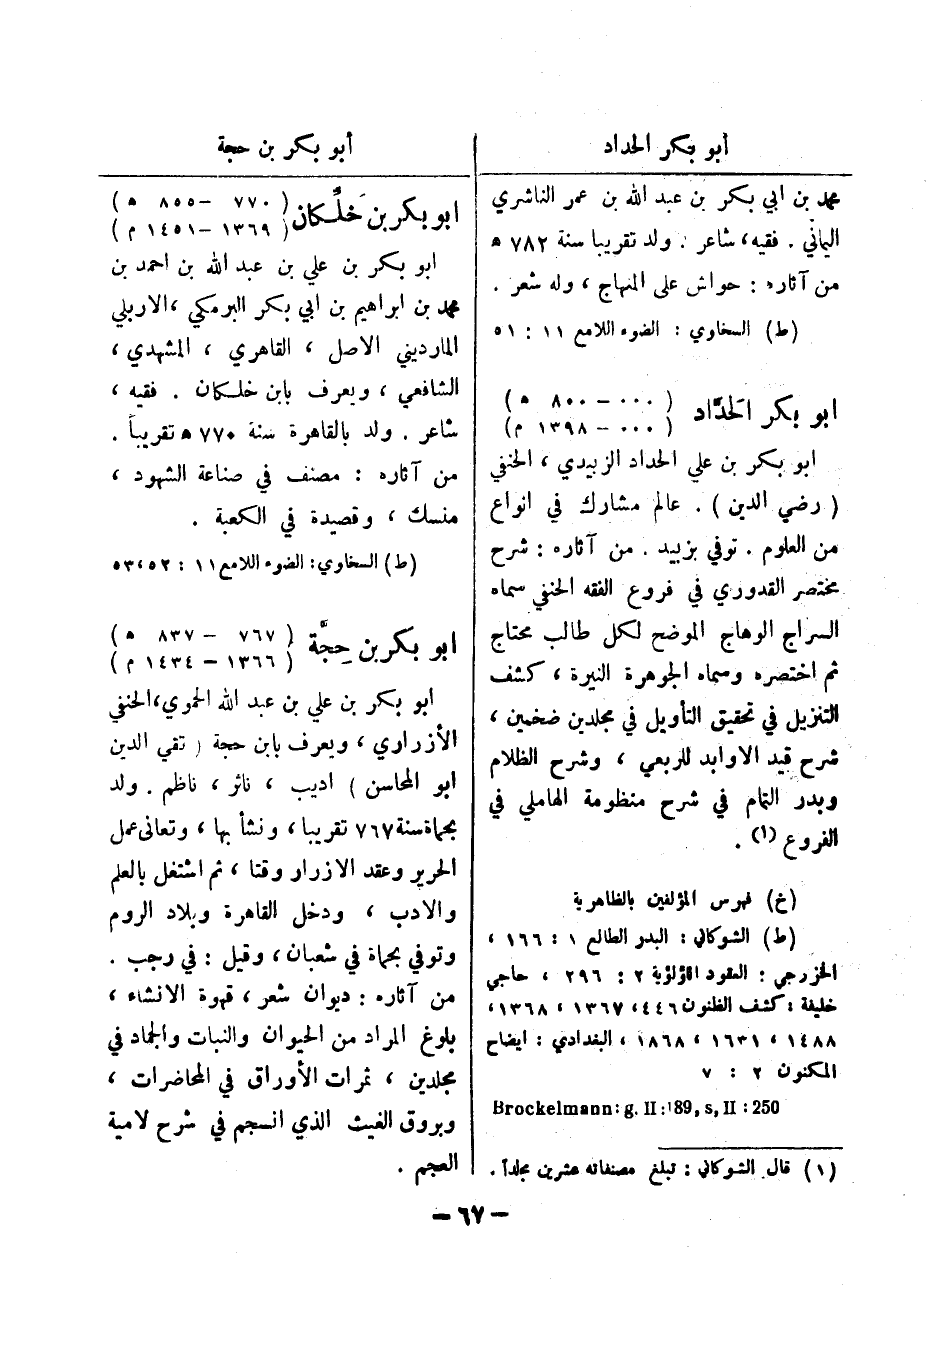 أبو بكر الحداد
محمد بن ابي بكر بن عبد الله بن عمر الناشري
اليماني . فقيه، شاعر . ولد تقريبا سنة ٧٨٢ ه
من آثاره : حواش على المنهاج ، وله شعر .
(ط) السخاوي : الضوء اللامع ١١ : ٥١
ابو بكر الحدَّاد
( ٠٠٠ - ٨٠٠ ه )
( ٠٠٠ - ١٣٩٨ م)
ابو بكر بن علي الحداد الزبيدي ، الحنفي
( رضي الدين ) . عالم مشارك في انواع
من العلوم . توفي بزبيد . من آثاره : شرح
مختصر القدوري في فروع الفقه الحنفي سماه
السراج الوهاج الموضح لكل طالب محتاج
ثم اختصره وسماه الجوهرة النيرة ، كشف
التنزيل في تحقيق التأويل في مجلدين ضخمين ،
شرح قيد الاوابد للربعي ، وشرح الظلام
وبدر التمام في شرح منظومة الهاملي في
الفروع (١) .
(خ) فهرس المؤلفين بالظاهرية
(ط) الشوكاني : البدر الطالع ١ : ١٦٦ ،
الخزرجي : العقود اللؤلؤية ٢ : ٢٩٦ ، حاجي
خليفة : كشف الظنون ٤٤٦، ١٣٦٧ ، ١٣٦٨،
١٤٨٨ ، ١٦٣١ ، ١٨٦٨ ، البغدادي : ايضاح
المكنون ٢ : ٧
Brockelmann: g. II :189, s, II : 250
(١) قال الشوكاني : تبلغ مصنفاته عشرين مجلداً .
أبو بكر بن حجة
ابو بكر بن خَلِّكان
( ٧٧٠ - ٨٥٥ ه )
( ١٣٦٩ - ١٤٥١ م )
ابو بكر بن علي بن عبد الله بن احمد بن
محمد بن ابراهيم بن ابي بكر البرمكي ،الاربلي
المارديني الاصل ، القاهري ، المشهدي ،
الشافعي ، ويعرف بابن خلكان . فقيه ،
شاعر . ولد بالقاهرة سنة ٧٧٠ ه تقريباً .
من آثاره : مصنف في صناعة الشهود ،
منسك ، وقصيدة في الكعبة .
(ط) السخاوي: الضوء اللامع ١١ : ٥٢، ٥٣
ابو بكر بن حِجَّة
( ٧٦٧ - ٨٣٧ ه )
( ١٣٦٦ - ١٤٣٤ م )
ابو بكر بن علي بن عبد الله الحموي،الحنفي
الأزراري ، ويعرف بابن حجة ( تقي الدين
ابو المحاسن ) اديب ، ناثر ، ناظم . ولد
بحماة سنة ٧٦٧ تقريبا ، ونشأ بها ، وتعانى عمل
الحرير وعقد الازرار وقتا ، ثم اشتغل بالعلم
والادب ، ودخل القاهرة وبلاد الروم
وتوفي بحماة في شعبان ، وقيل : في رجب .
من آثاره : ديوان شعر ، قهوة الانشاء ،
بلوغ المراد من الحيوان والنبات والجماد في
مجلدين ، ثمرات الأوراق في المحاضرات ،
وبروق الغيث الذي انسجم في شرح لامية
العجم .
- ٦٧ -